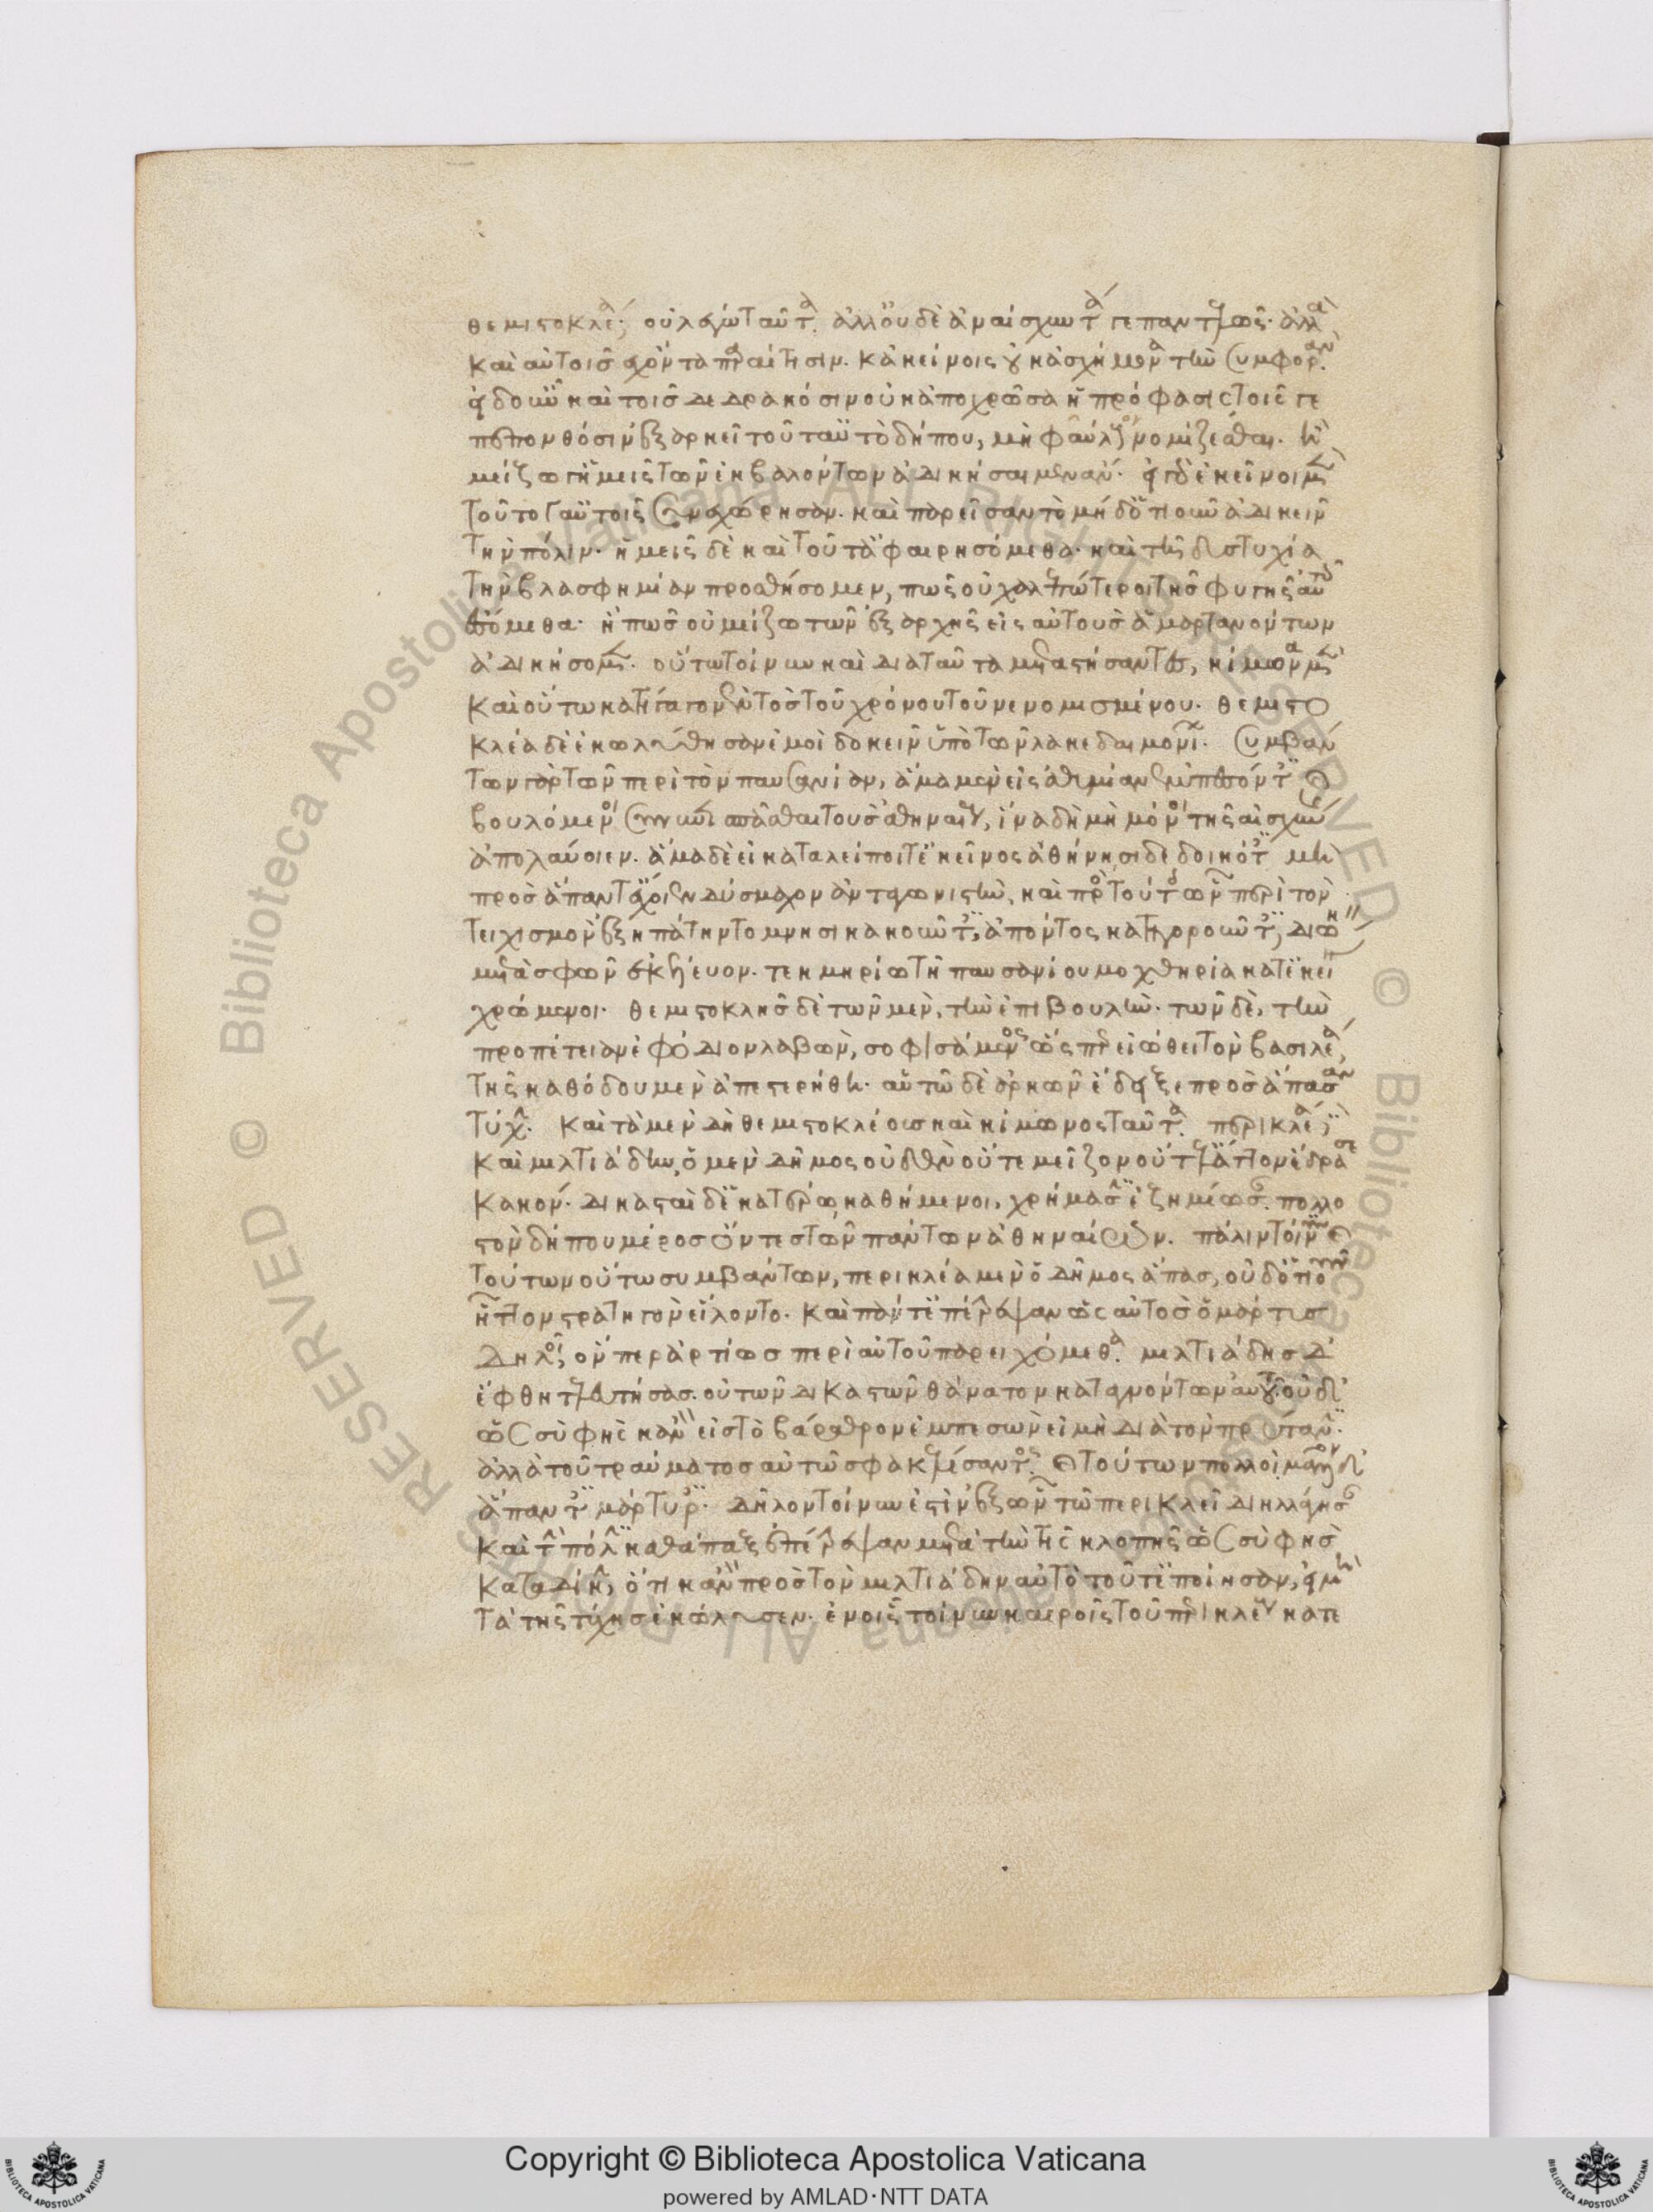 θεμιστοκλέα; οὐ λέγω ταῦτα. ἀλλ' οὐδὲ ἀναίσχυντά γε παντελῶς. ἀλλὰ
καὶ αὐτοῖς ἔχοντα παραίτησιν. κἀκείνοις οὐκ ἀσχήμονα τὴν συμφορὰν
καὶ τοῖς δεδρακόσιν οὐκ ἀποχρῶσα ἡ πρόφασις τοῖς γε
πεπονθόσιν ἐξαρκεῖ τοῦτ' αὐτὸ δήπου, μὴ φαύλους νομίζεσθαι. ἢ
μείζω γ' ἡμεῖς τῶν ἐκβαλόντων ἀδικήσαιμεν ἄν. εἴ γ' ἐκεῖνοι μὲν
τοῦτό γ' αὐτοῖς συνεχώρησαν. καὶ παρεῖσαν τὸ μηδ' ὁτιοῦν ἀδικεῖν
τὴν πόλιν. ἡμεῖς δὲ καὶ τοῦτ' ἀφαιρησόμεθα. καὶ τῇ δυστυχίᾳ
τὴν βλασφημίαν προσθήσομεν, πῶς οὐ χαλεπώτεροι τῆς φυγῆς αὐτοῖς
ἐσόμεθα. ἢ πῶς οὐ μείζω τῶν ἐξ ἀρχῆς εἰς αὐτοὺς ἁμαρτανόντων
ἀδικήσομεν. οὕτω τοίνυν καὶ διὰ ταῦτα μεταστήσαντες, κίμωνα μὲν
καὶ οὕτω κατήγαγον ἐντὸς τοῦ χρόνου τοῦ νενομισμένου. θεμιστο
κλέα δὲ ἐκωλύθησαν ἐμοὶ δοκεῖν ὑπὸ τῶν λακεδαιμονίων. συμβάν
των γὰρ τῶν περὶ τὸν παυσανίαν, ἅμα μὲν εἰς ἀτιμίαν ἐμπεσόντες
βουλόμενοι συνεπισπάσασθαι τοὺς ἀθηναίους, ἵνα δὴ μὴ μόνοι τῆς αἰσχύνης
ἀπολαύοιεν. ἅμα δὲ εἰ καταλείποιτ' ἐκεῖνος ἀθήνησι δεδοικότες μὴ
πρὸς ἅπαντ' ἔχοιεν δύσμαχον ἀνταγωνιστὴν, καὶ πρὸς τούτοις ὧν περὶ τὸν
τειχισμὸν ἐξηπάτηντο μνησικακοῦντες, ἀπόντος κατηγοροῦντες, διώκειν
μετὰ σφῶν ἐσκεύον. τεκμηρίῳ τῇ παυσανίου μοχθηρίᾳ κατ' ἐκείνου
χρώμενοι. θεμιστοκλῆς δὲ τῶν μὲν, τὴν ἐπιβουλὴν. τῶν δὲ, τὴν
προπέτειαν ἐφόδιον λαβὼν, σοφισάμενος ὥσπερ εἰώθει τὸν βασιλέα,
τῆς καθόδου μὲν ἀπεστερήθη. αὐτῷ δὲ ἀρκῶν ἔδειξε πρὸς ἅπασαν
τύχην. καὶ τὰ μὲν δὴ θεμιστοκλέους καὶ κίμωνος ταῦτα. περικλέα δὲ
καὶ μιλτιάδην, ὁ μὲν δῆμος οὐδὲν οὔτε μεῖζον οὔτ' ἔλαττον ἔδρασε
κακόν. δικασταὶ δ' ἑκατέρῳ καθήμενοι, χρήμασιν ἐζημίωσαν. πολλο
στὸν δήπου μέρος ὄντες τῶν πάντων ἀθηναίων. πάλιν τοίνυν
τούτων οὕτω συμβάντων, περικλέα μὲν ὁ δῆμος ἅπας, οὐδ' ὁτιοῦν
ἧττον στρατηγὸν εἵλοντο. καὶ πάντ' ἐπέτρεψαν ὡς αὐτὸς ὁ μάρτυς
δηλοῖ, ὃν περ ἀρτίως περὶ αὐτοῦ παρειχόμεθα. μιλτιάδης δ'
ἔφθη τελευτήσας. οὐ τῶν δικαστῶν θάνατον καταγνόντων αὐτοῦ. οὐδ'
ὡς σὺ φῂς κἂν εἰς τὸ βάραθρον ἐμπεσὼν εἰ μὴ διὰ τὸν πρύτανιν.
ἀλλὰ τοῦ τραύματος αὐτῷ σφακελίσαντος. τούτων πολλοὶ μᾶλλον δ'
ἅπαντες μάρτυρες. δῆλον τοίνυν ἐστὶν ἐξ ὧν τῷ περικλεῖ διηλλάγησαν
καὶ τὴν πόλιν καθάπαξ ἐπέτρεψαν μετὰ τὴν τῆς κλοπῆς ὡς σὺ φῂς
καταδίκην, ὅτι κἂν πρὸς τὸν μιλτιάδην αὐτὸ τοῦτ' ἐποίησαν, εἰ μὴ
τὰ τῆς τύχης ἐκώλυσεν. ἐν οἷς τοίνυν καιροῖς τοῦ περικλέους κατε